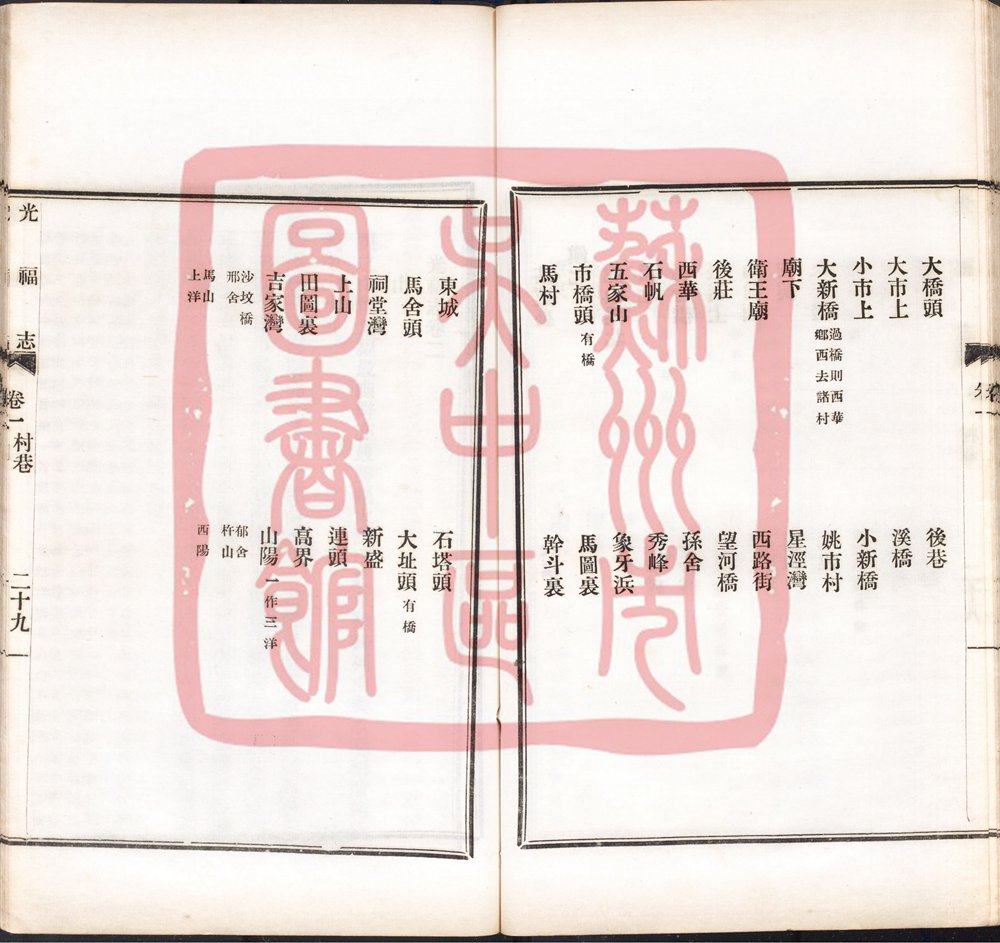 大橋頭 後巷
大市上 溪橋
小市上 小新橋
大新橋 過橋則西華鄉西去諸村 姚市村
廟下 星涇灣
衛王廟 西路街
後莊 望河橋
西華 孫舍
石帆 秀峰
五家山 象牙浜
市橋頭 有橋 馬圖裏
馬村 幹斗裏
東城 石塔頭
馬舍頭 大址頭 有橋
祠堂灣 新盛
上山 連頭
田圖裏 高界
吉家灣 山陽 一作三洋
沙坟橋 郁舍
邢舍 杵山
馬山 西陽
上洋
光福志 卷一 村巷 二十九
蘇州市
吳中區
圖書館